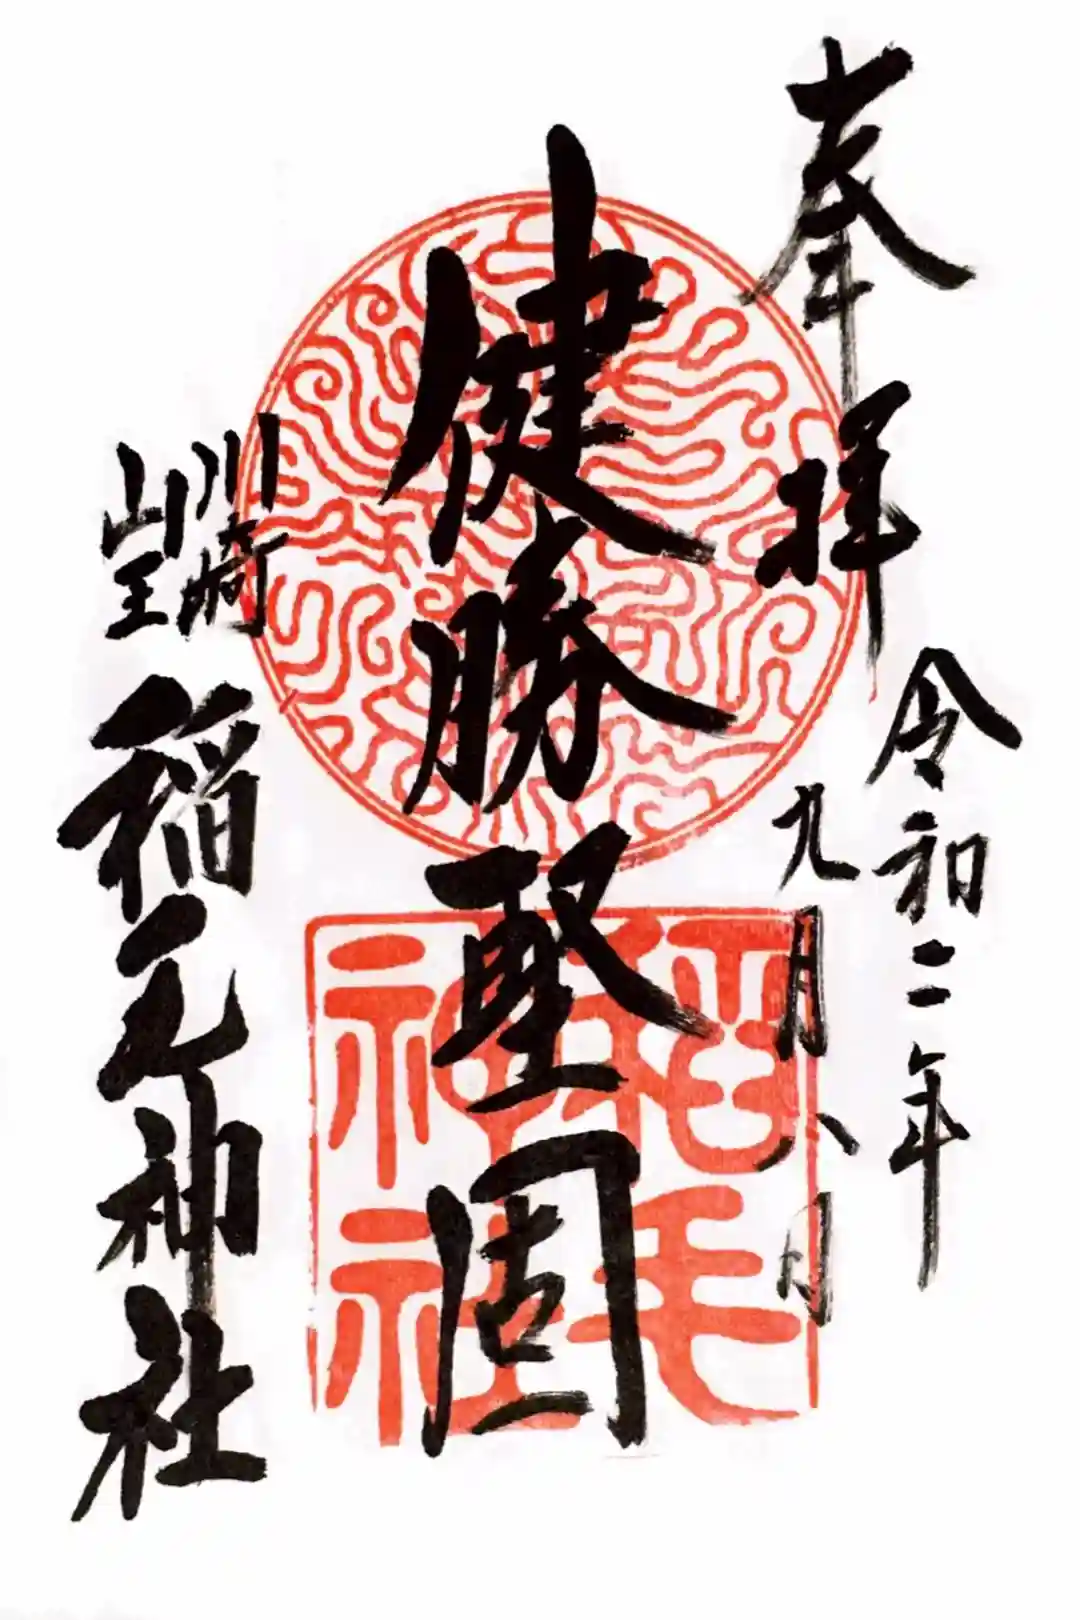 奉拝
令和二年
九月八日
健勝堅固
川崎
山王
稲毛神社
稲毛
神社